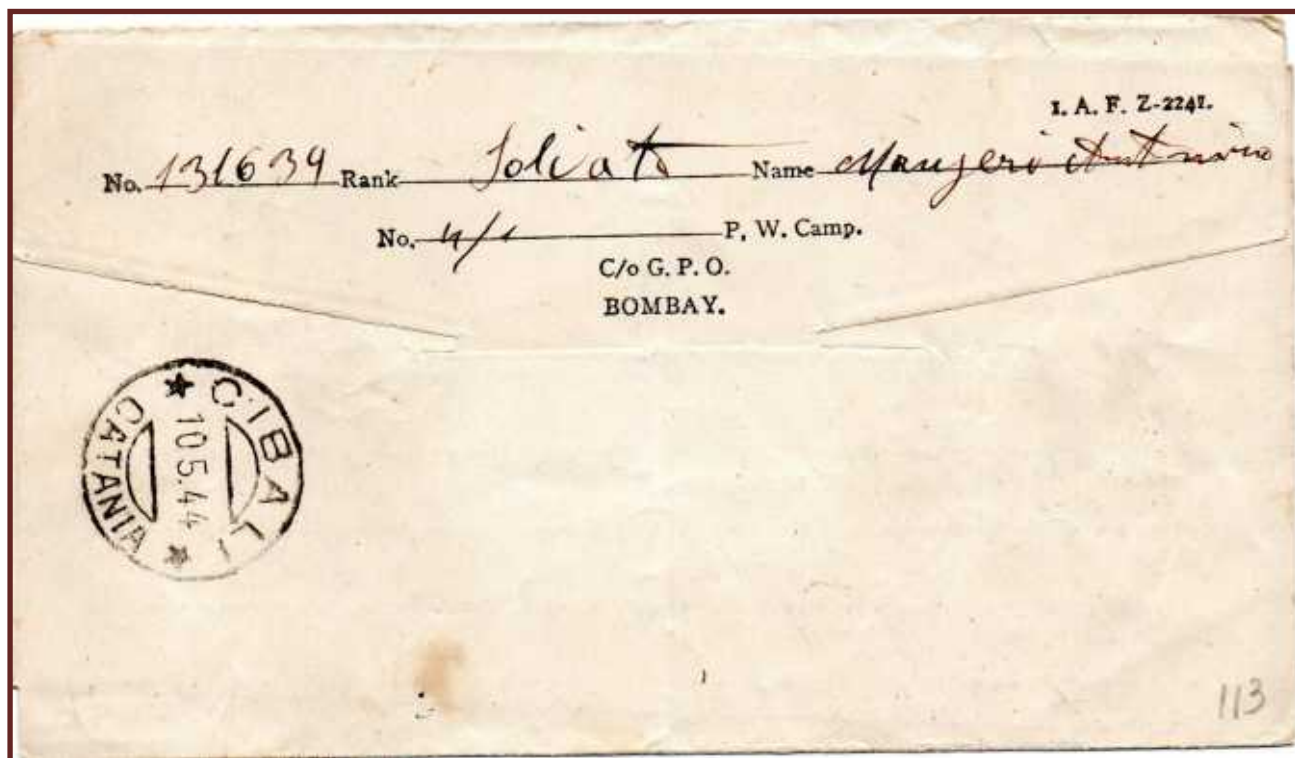 I. A. F. Z-2241.
No. 131639 Rank Soldato Name Maugeri Antonio
No. 4/1 P. W. Camp.
C/o G. P. O.
BOMBAY.
CIBALI
10 5.44
CATANIA
113